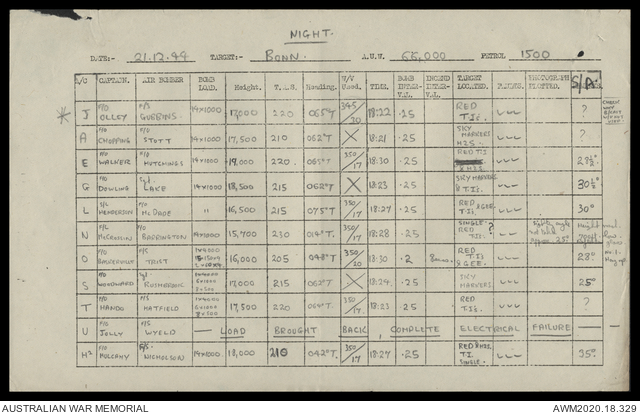 NIGHT.
DATE:- 21.12.44 TARGET:- BONN. A.U.W. 65,000 PETROL 1500
A/C CAPTAIN. AIR BOMBER BOMB LOAD. Height. T.A.S. Heading. W/V Used. TIME. BOMB INTER-VAL INCEND INTER-VAL TARGET LOCATED. PHOTOGRAPH PLOTTED. S/A:
* J F/O OLLEY GUBBINS 14x1000 17,000 220 065°T 345/20 18:22 .25 RED T.I's. ?
A F/O CHOPPING F/O STOTT 14x1000 17,500 210 062°T X 18:21 .25 SKY MARKERS H2S. ?
E F/O WALKER F/O HUTCHINGS 14x1000 350/17 18:30 .25 RED T.I & H2S. 28½°
G F/O DOWLING Sgt. LAKE 14x1000 18,500 215 062°T X 18:23 .25 SKY MARKERS & T.I's. 30½°
L HENDERSON F/O McDADE " 16,500 215 075°T 350/17 18:27 .25 RED & GEE T.I's. 30°
N F/O BARRINGTON 14x1000 15,700 230 014°T. 350/17 18:28 .25 SINGLE RED T.I's. ?
O F/O BASKERVILLE F/S TRUST 16,000 205 048°T 350/20 18:30 .2 RED T.I's & GEE. 28°
S F/O WOODWARD Sgt. 17,000 215 062°T X 18:24. .25 SKY MARKERS. 25°
T F/O HANDO F/S HATFIELD 17,500 220 350/17 18:23 .25 RED T.I's ?
U F/O JOLLY W/S WYELD — LOAD BROUGHT BACK, COMPLETE ELECTRICAL FAILURE —
H² F/O MULCAHY F/S NICHOLSON 14x1000 18,000 210 042°T. 350/17 18:27 .25 RED & H2S. T.I. SINGLE. 35°
AUSTRALIAN WAR MEMORIAL AWM2020.18.329